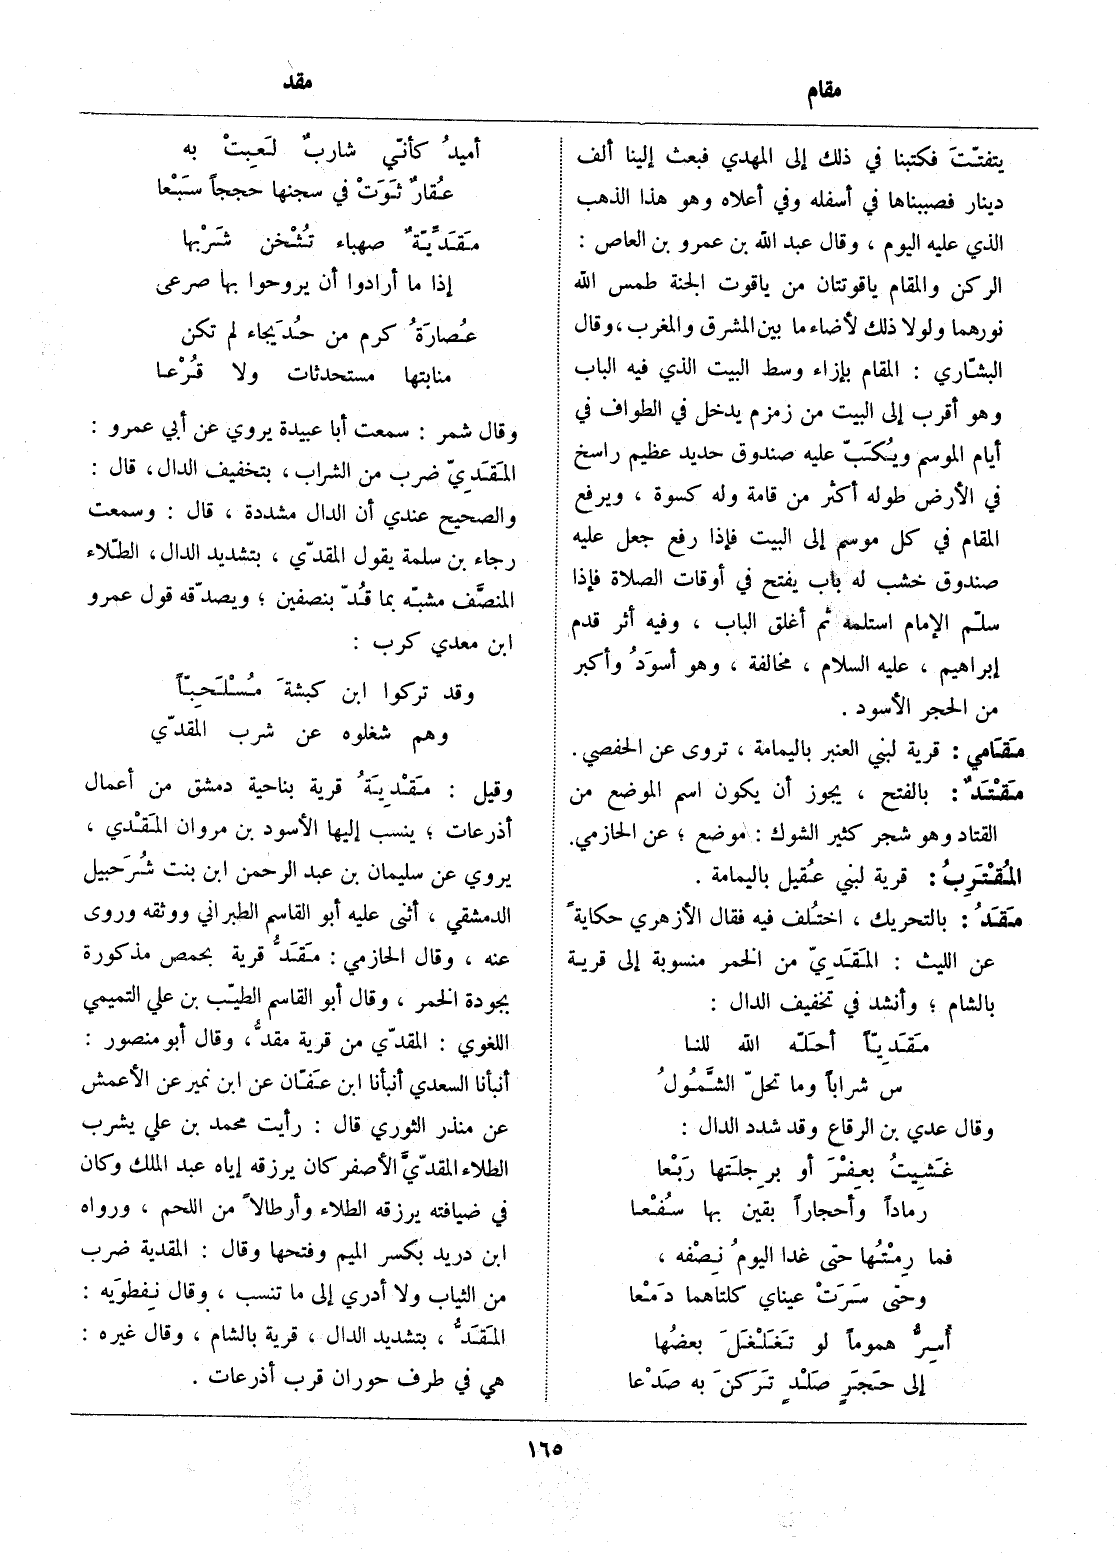 مقام
مقد
يتفتّتَ فكتبنا في ذلك إلى المهدي فبعث إلينا ألف
دينار فصببناها في أسفله وفي أعلاه وهو هذا الذهب
الذي عليه اليوم ، وقال عبد الله بن عمرو بن العاص :
الركن والمقام ياقوتتان من ياقوت الجنة طمس الله
نورهما ولولا ذلك لأضاءما بين المشرق والمغرب ، وقال
البشّاري : المقام بإزاء وسط البيت الذي فيه الباب
وهو أقرب إلى البيت من زمزم يدخل في الطواف في
أيام الموسم ويُكَبّ عليه صندوق حديد عظيم راسخ
في الأرض طوله أكثر من قامة وله كسوة ، ويرفع
المقام في كل موسم إلى البيت فإذا رفع جعل عليه
صندوق خشب له باب يفتح في أوقات الصلاة فإذا
سلّم الإمام استلمه ثم أغلق الباب ، وفيه أثر قدم
إبراهيم ، عليه السلام ، مخالفة ، وهو أسوَدُ وأكبر
من الحجر الأسود .
مَقَامي : قرية لبني العنبر باليمامة ، تروى عن الحفصي .
مَقْتَدٌ : بالفتح ، يجوز أن يكون اسم الموضع من
القتاد وهو شجر كثير الشوك : موضع ؛ عن الحازمي.
المُقْتَرِبُ : قرية لبني عُقيل باليمامة .
مَقَدُ : بالتحريك ، اختُلف فيه فقال الأزهري حكايةً
عن الليث : المَقَدِيّ من الخمر منسوبة إلى قرية
بالشام ؛ وأنشد في تخفيف الدال :
مَقَدِيّاً أحلّه الله للنا
س شراباً وما تحلّ الشَّمُولُ
وقال عدي بن الرقاع وقد شدد الدال :
غَشِيتُ بعِفْرَ أو برِجلَتها رَبْعا
رماداً وأحجاراً بقين بها سُفْعا
فما رِمْتُها حتى غدا اليومُ نِصْفه ،
وحتى سَرَتْ عيناي كلتاهما دَمْعا
أُسِرُّ هموماً لو تَغَلْغَلَ بعضُها
إلى حَجَرٍ صَلْدٍ تَرَكنَ به صَدْعا
أميدُ كأنّي شاربٌ لَعِبتْ به
عُقارٌ ثَوَتْ في سجنها حججاً سَبْعا
مَقَدِّيّةٌ صهباء تُثْخن شَرْبها
إذا ما أرادوا أن يروحوا بها صرعى
عُصارَةُ كرم من حُدَيجاء لم تكن
منابتها مستحدثات ولا قُرْعا
وقال شمر : سمعت أبا عبيدة يروي عن أبي عمرو :
المَقَدِيّ ضرب من الشراب ، بتخفيف الدال ، قال :
والصحيح عندي أن الدال مشددة ، قال : وسمعت
رجاء بن سلمة يقول المقدّي ، بتشديد الدال ، الطّلاء
المنصَّف مشبّه بما قُدّ بنصفين ؛ ويصدّقه قول عمرو
ابن معدي كرب :
وقد تركوا ابن كبشةَ مُسْلَحِبّاً
وهم شغلوه عن شرب المقدّي
وقيل : مَقْدِيَةُ قرية بناحية دمشق من أعمال
أذرعات ؛ ينسب إليها الأسود بن مروان المَقْدي ،
يروي عن سليمان بن عبد الرحمن ابن بنت شُرَحبيل
الدمشقي ، أثنى عليه أبو القاسم الطبراني ووثقه وروى
عنه ، وقال الحازمي : مَقَدُّ قرية بحمص مذكورة
بجودة الخمر ، وقال أبو القاسم الطيّب بن علي التميمي
اللغوي : المقدّي من قرية مقدُّ ، وقال أبو منصور :
أنبأنا السعدي أنبأنا ابن عفّان عن ابن نمير عن الأعمش
عن منذر الثوري قال : رأيت محمد بن علي يشرب
الطلاء المقدّيَّ الأصفر كان يرزقه إياه عبد الملك وكان
في ضيافته يرزقه الطلاء وأرطالاً من اللحم ، ورواه
ابن دريد بكسر الميم وفتحها وقال : المقدية ضرب
من الثياب ولا أدري إلى ما تنسب ، وقال نِفطوَيه :
المَقَدُّ ، بتشديد الدال ، قرية بالشام ، وقال غيره :
هي في طرف حوران قرب أذرعات .
١٦٥